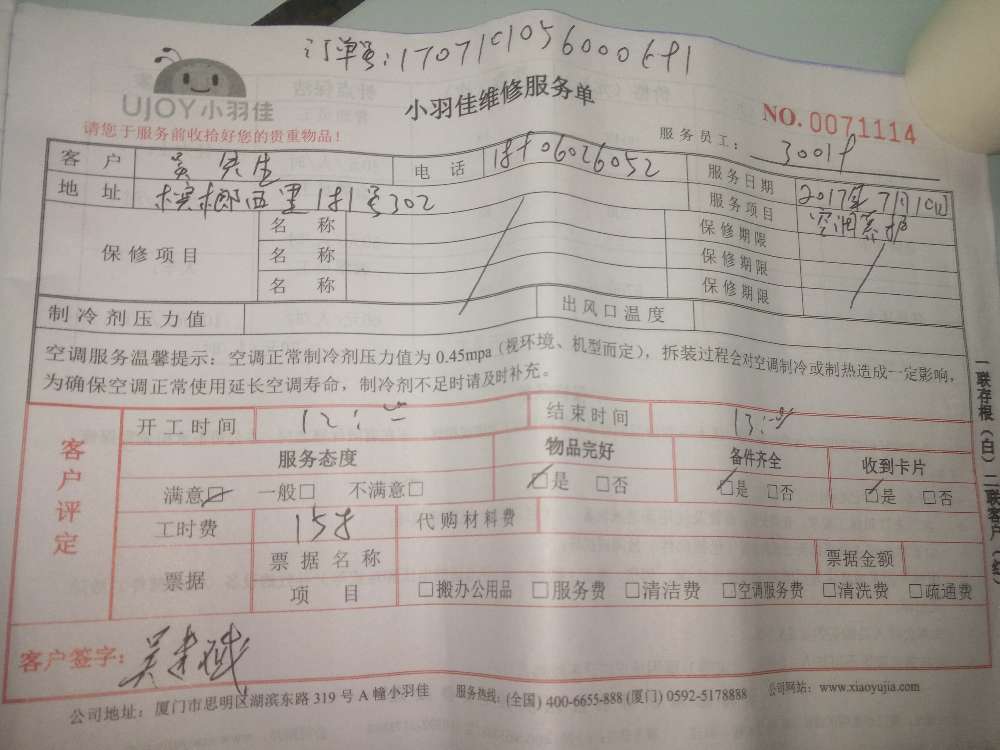 订单号:
UJOY小羽佳
小羽佳维修服务单
NO. 0071114
请您于服务前收拾好您的贵重物品！
服务员工：
客 户 吴先生 电 话 服务日期 2017年7月10日
地 址 槟榔西里181号302 服务项目
保修项目
名 称 保修期限
名 称 保修期限
名 称 保修期限
制冷剂压力值 出风口温度
空调服务温馨提示：空调正常制冷剂压力值为 0.45mpa（视环境、机型而定），拆装过程会对空调制冷或制热造成一定影响，
为确保空调正常使用延长空调寿命，制冷剂不足时请及时补充。
客户评定
开工时间 结束时间
服务态度 物品完好 备件齐全 收到卡片
满意□ 一般□ 不满意□ □是 □否 □是 □否 □是 □否
工时费 158 代购材料费
票据
票据名称 票据金额
项 目 □搬办公用品 □服务费 □清洁费 □空调服务费 □清洗费 □疏通费
客户签字：
公司地址：厦门市思明区湖滨东路 319 号 A 幢小羽佳 服务热线：(全国) 400-6655-888 (厦门) 0592-5178888 公司网站：www.xiaoyujia.com
一联存根（白）二联客户（红）